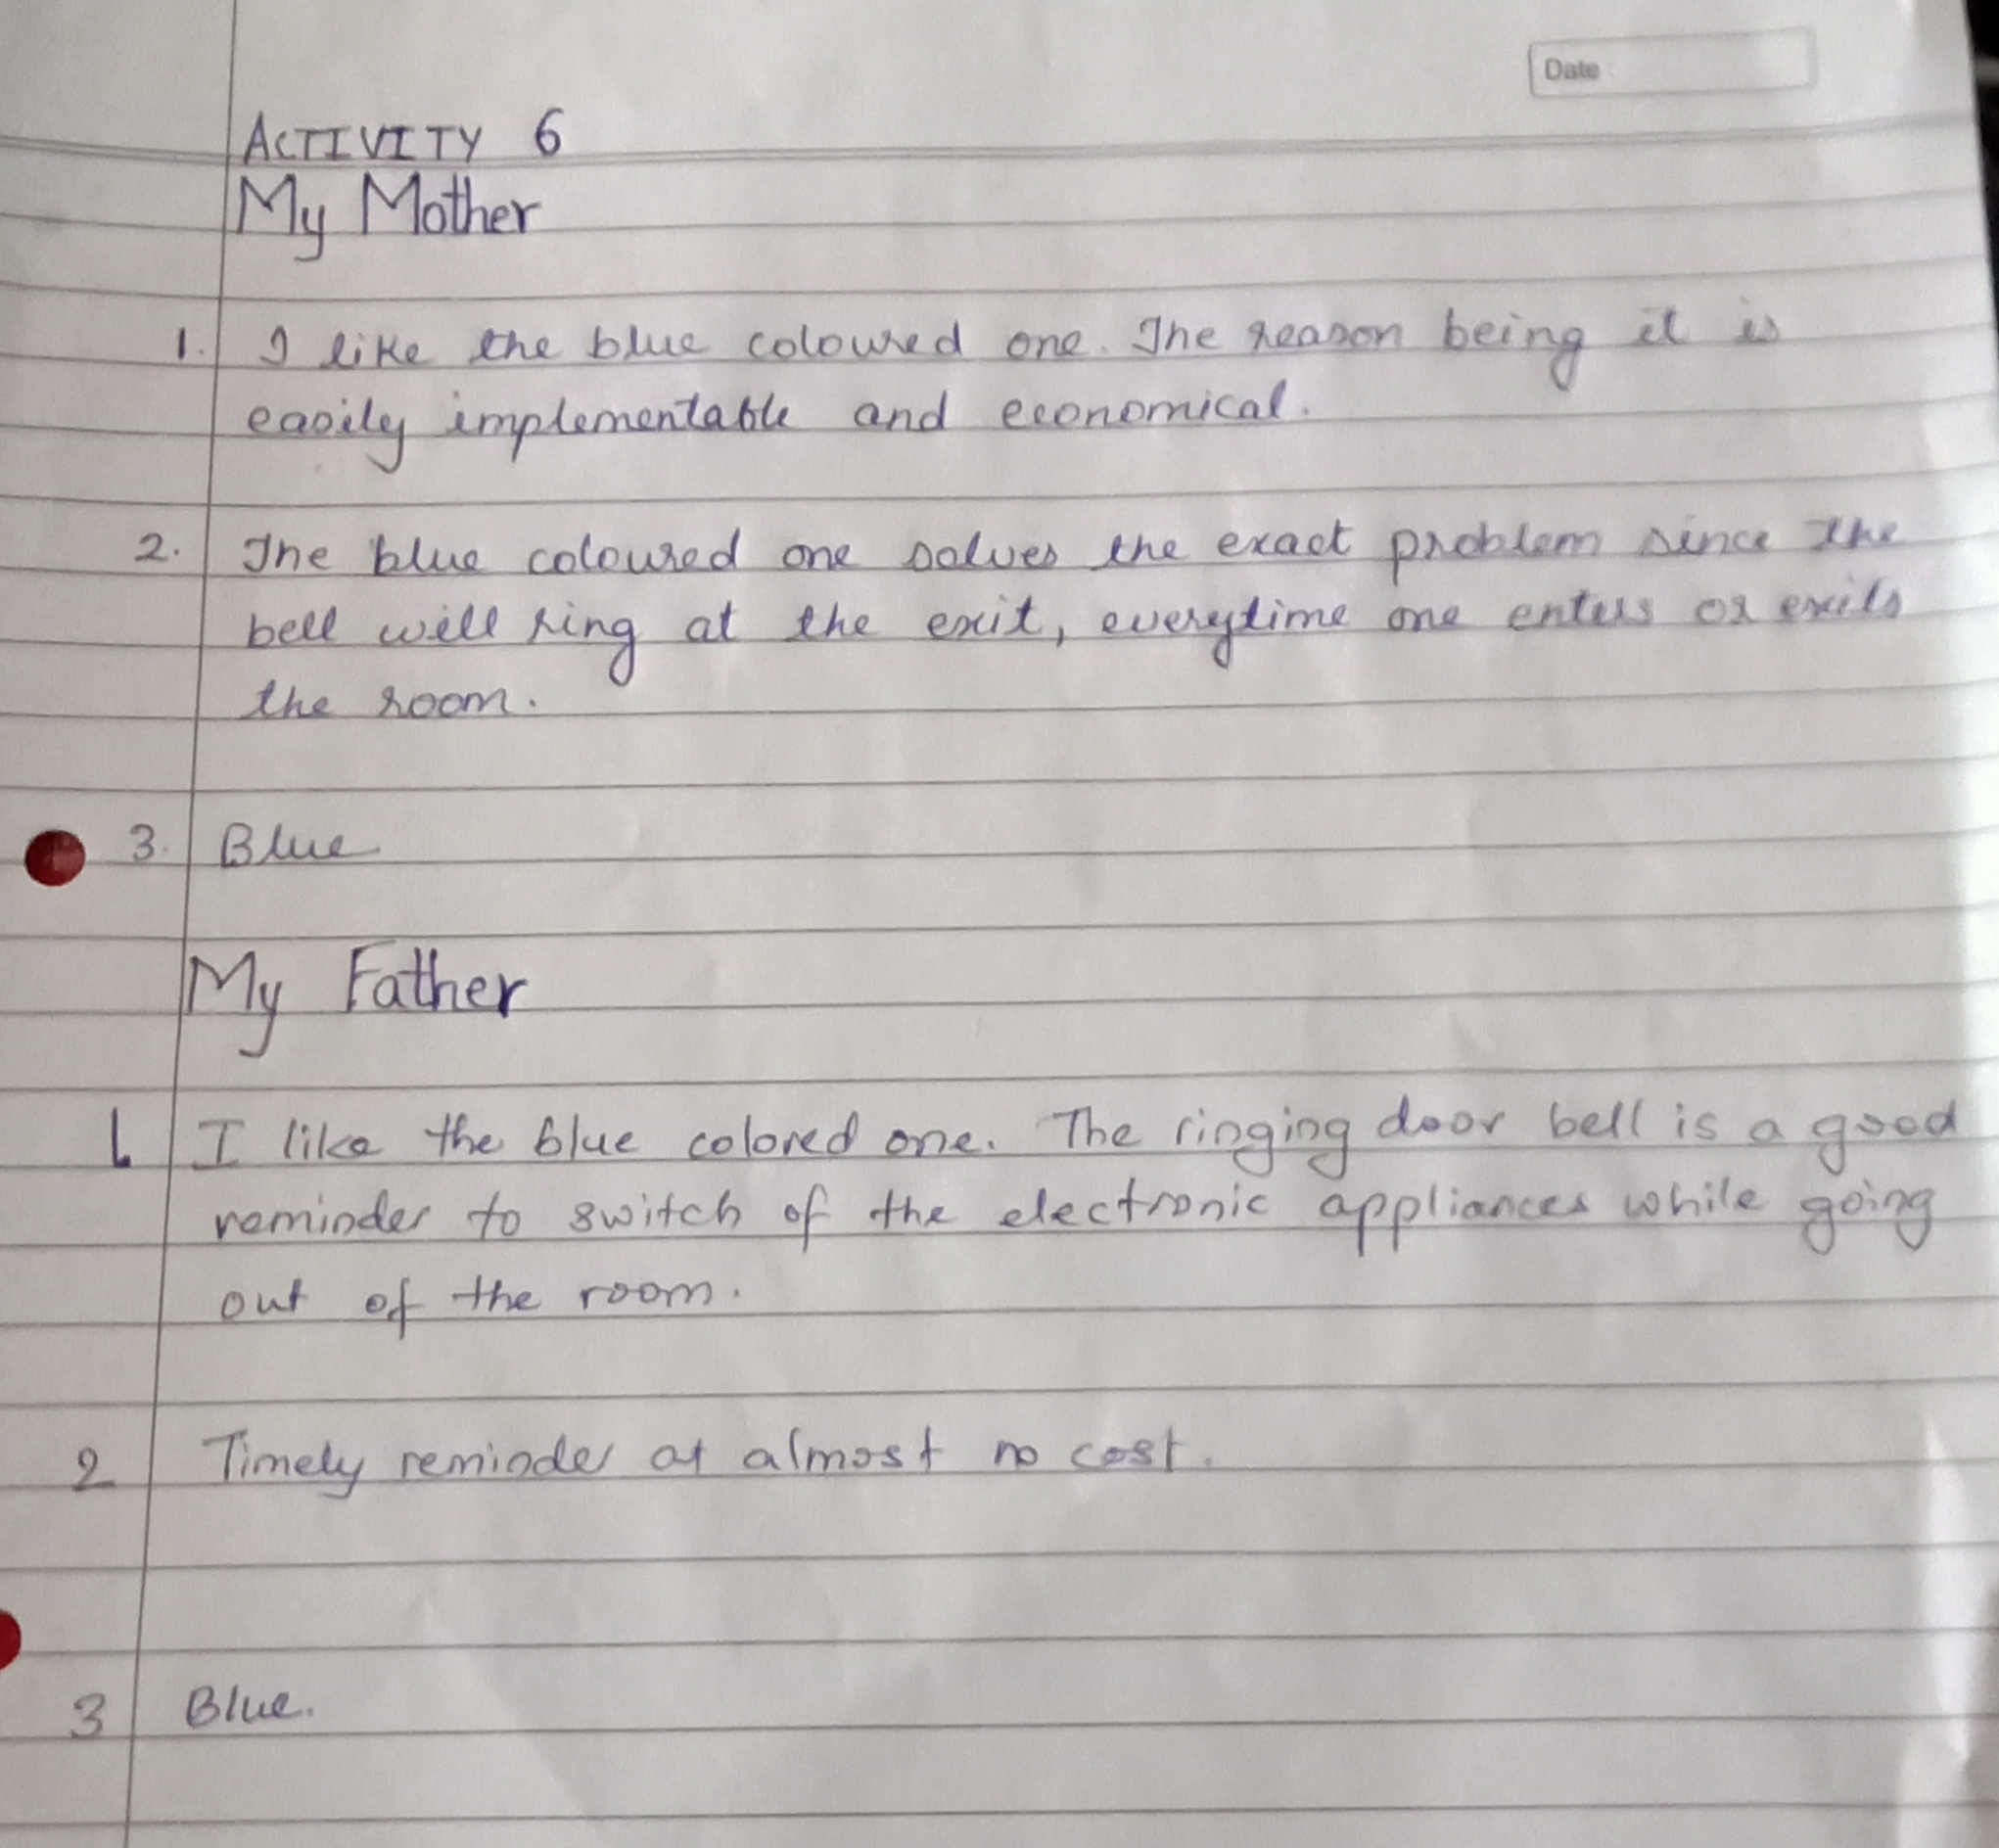 Date
ACTIVITY 6
My Mother
1. I like the blue coloured one. The reason being it is
easily implementable and economical.
2. The blue coloured one solves the exact problem since the
bell will ring at the exit, everytime one enters or exits
the room.
3. Blue
My Father
1. I like the blue colored one. The ringing door bell is a good
reminder to switch of the electronic appliances while going
out of the room.
2 Timely reminder at almost no cost.
3 Blue.